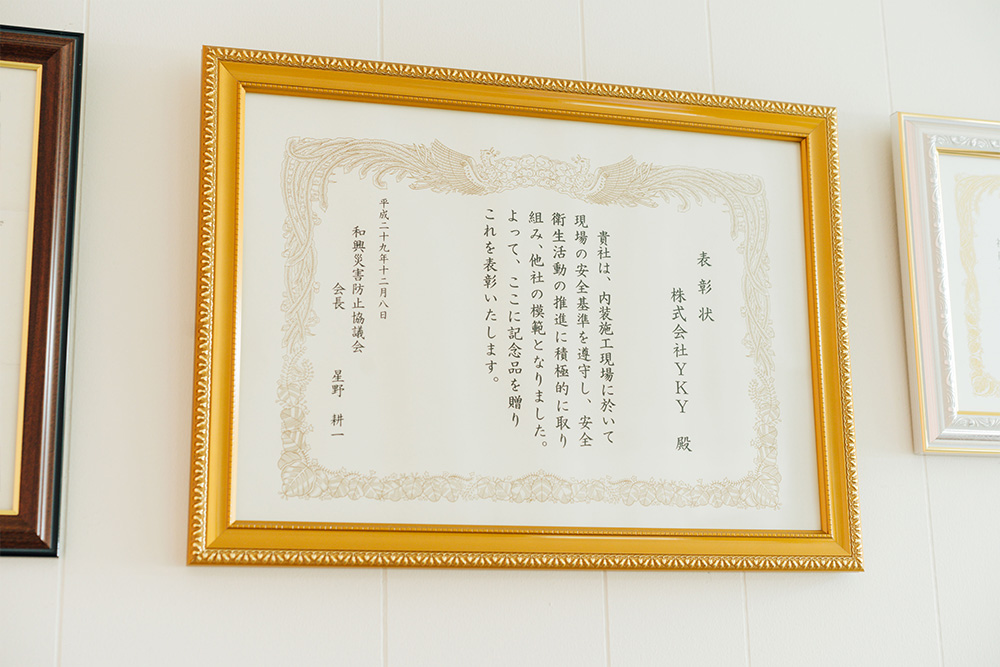 表彰状
株式会社YKY 殿
貴社は、内装施工現場に於いて
現場の安全基準を遵守し、安全
衛生活動の推進に積極的に取り
組み、他社の模範となりました。
よって、ここに記念品を贈り
これを表彰いたします。
平成二十九年十二月八日
和興災害防止協議会
会長 星野 耕一